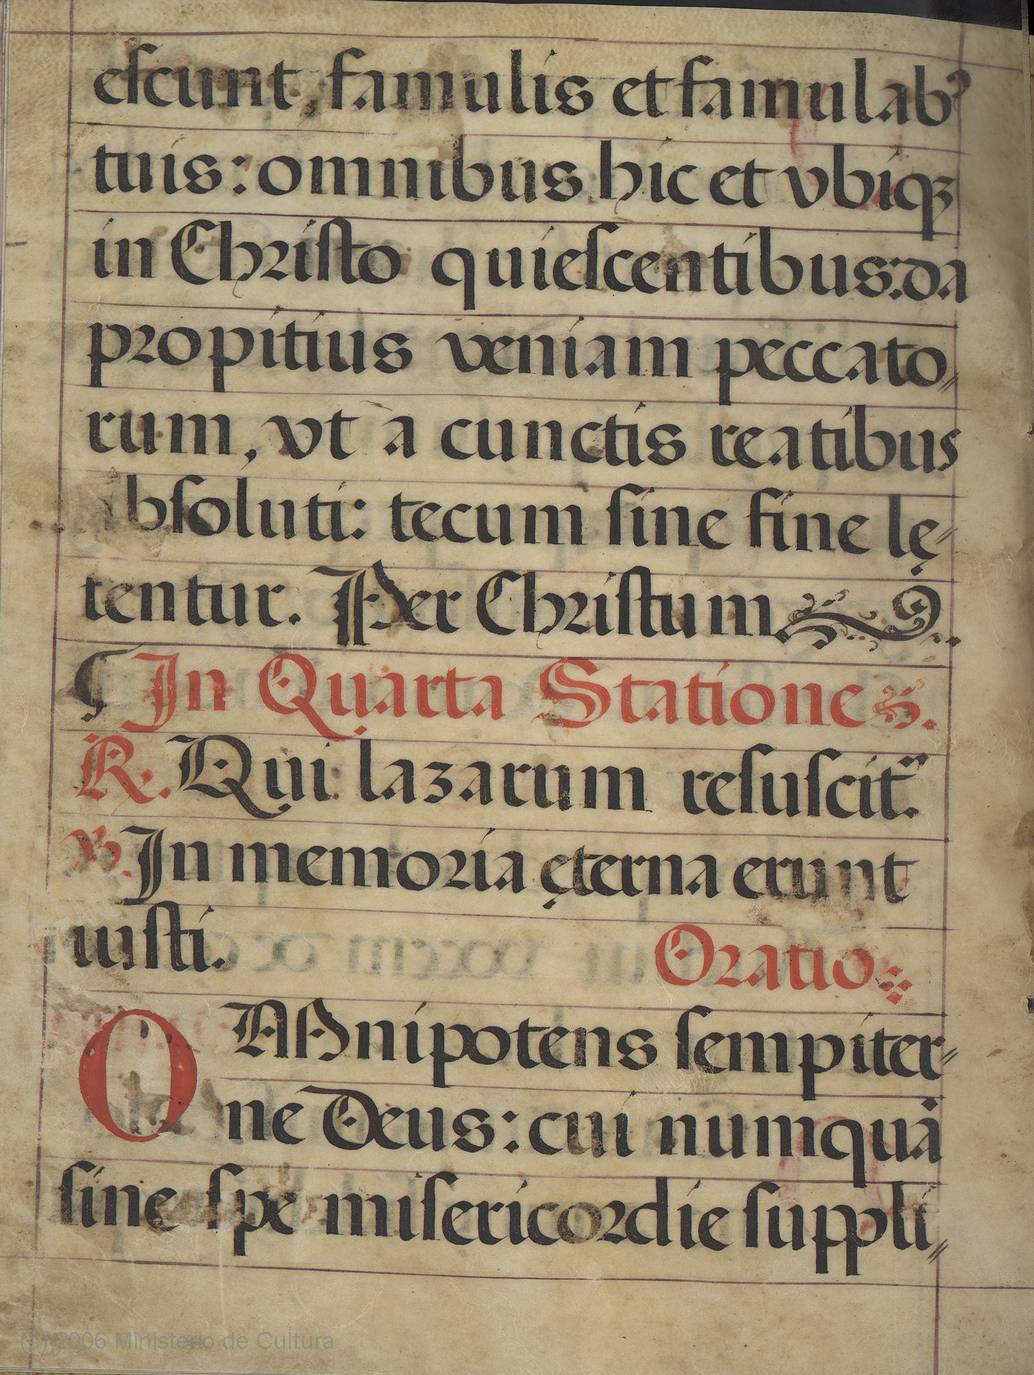 eſcunt, famulis et famulabꝰ
tuis: omnibus hic et vbiqꝫ
in Chriſto quieſcentibus: da
propitius veniam peccato⸗
rum, vt a cunctis reatibus
bſoluti: tecum ſine fine lę⸗
tentur. Per Chriſtum
¶ In Quarta Statione.
R. Qui lazarum reſuſcit.
℣. In memoria ęterna erunt
iuſti. Oratio
OMnipotens ſempiter⸗
ne Deus: cui numquã
ſine ſpe miſericordie ſuppli⸗
© 2006 Ministerio de Cultura